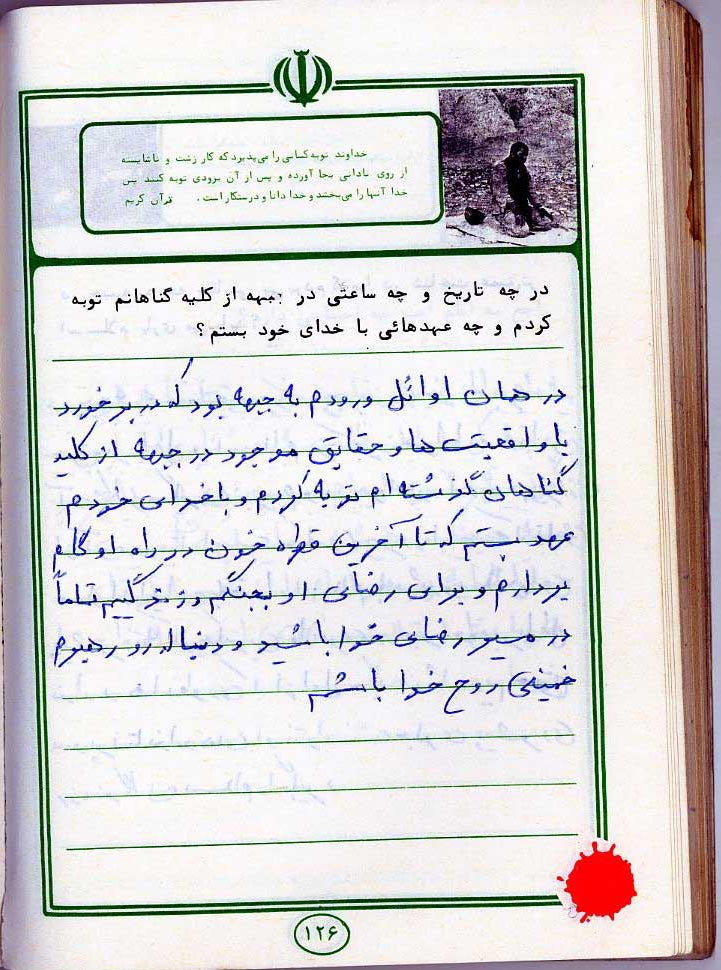 خداوند توبه کسانی را می‌پذیرد که کار زشت و ناشایسته
از روی نادانی بجا آورده و پس از آن بزودی توبه کنند پس
خدا آنها را می‌بخشد و خدا دانا و درستکار است. قرآن کریم
در چه تاریخ و چه ساعتی در جبهه از کلیه گناهانم توبه
کردم و چه عهدهائی با خدای خود بستم؟
در همان اوائل ورودم به جبهه بود که در برخورد
با واقعیت ها و حقایق موجود در جبهه از کلیه
گناهان گذشته ام توبه کردم و با خدای خودم
عهد بستم که تا آخرین قطره خون در راه او گام
بردارم و برای رضای او بجنگم و زندگیم تماماً
در مسیر رضای خدا باشد و دنباله رو رهبرم
خمینی روح خدا باشم
۱۲۶